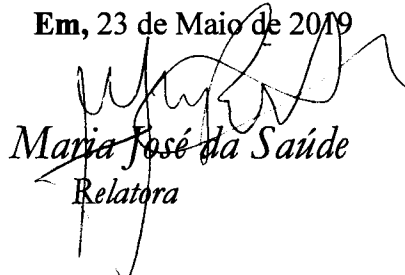 Em, 23 de Maio de 2019
Maria José da Saúde
Relatora